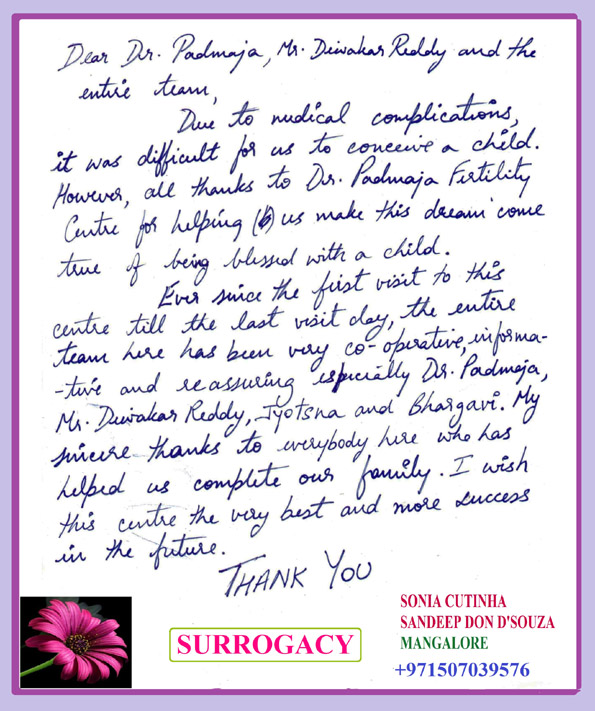 Dear Dr. Padmaja, Mr. Diwakar Reddy and the
entire team,
Due to medical complications,
it was difficult for us to conceive a child.
However, all thanks to Dr. Padmaja Fertility
Centre for helping (b) us make this dream come
true of being blessed with a child.
Ever since the first visit to this
centre till the last visit day, the entire
team here has been very co-operative, informa-
-tive and reassuring especially Dr. Padmaja,
Mr. Diwakar Reddy, Jyotsna and Bhargavi. My
sincere thanks to everybody here who has
helped us complete our family. I wish
this centre the very best and more success
in the future.
THANK YOU
SURROGACY
SONIA CUTINHA
SANDEEP DON D'SOUZA
MANGALORE
+971507039576